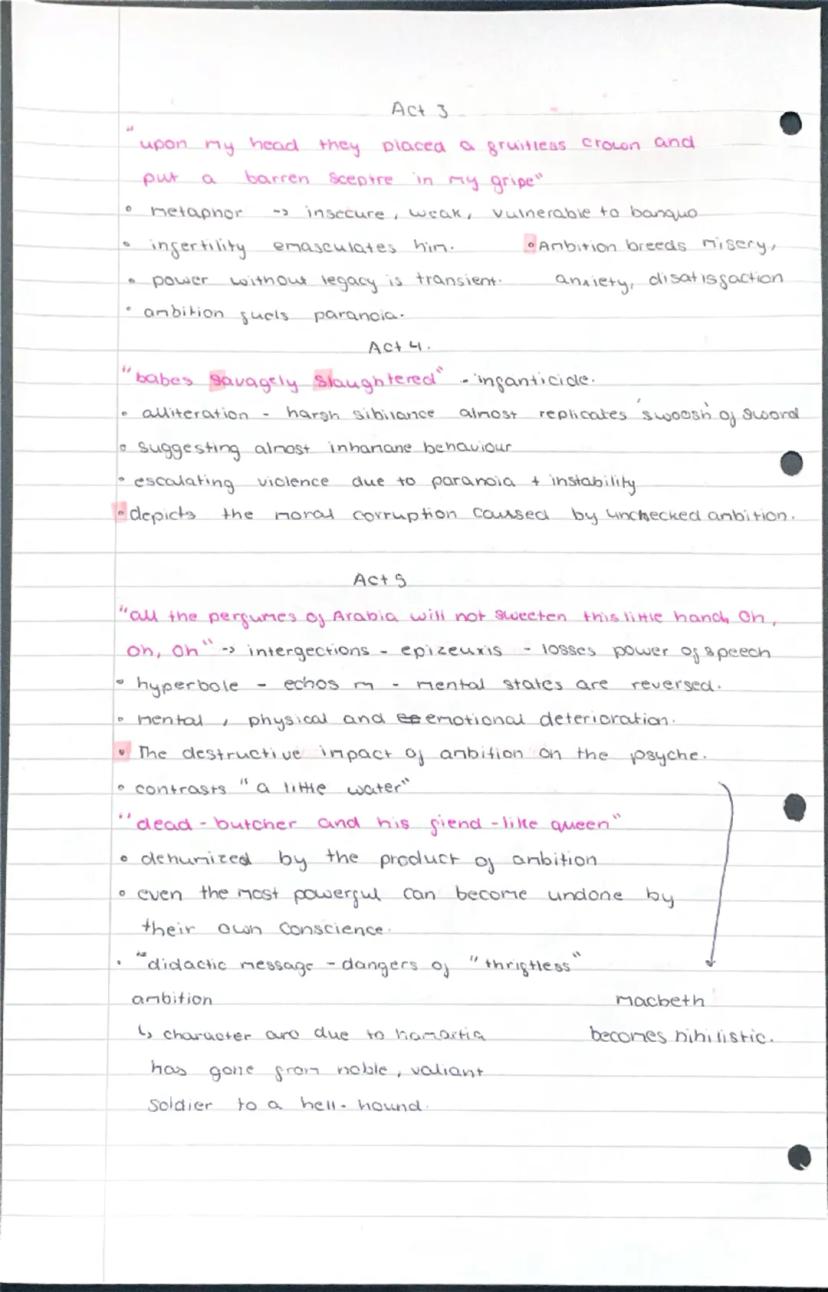 Act 3
"upon my head they placed a fruitless crown and
put a barren sceptre in my gripe"
• metaphor -> insecure, weak, vulnerable to banquo
• infertility emasculates him. • Ambition breeds misery,
• power without legacy is transient. anxiety, disatisfaction
• ambition fuels paranoia.
Act 4.
"babes savagely slaughtered" - infanticide.
• alliteration - harsh sibilance almost replicates 'swoosh' of sword
• suggesting almost inhamane behaviour
• escalating violence due to paranoia + instability
• depicts the moral corruption caused by unchecked ambition.
Act 5
"all the perfumes of Arabia will not sweeten this little hand, Oh,
Oh, Oh" -> intergections - epizeuxis - losses power of speech
• hyperbole - echos m - mental states are reversed.
• mental, physical and emotional deterioration.
• The destructive impact of ambition on the psyche.
• contrasts "a little water"
"dead-butcher and his fiend-like queen"
• dehumized by the product of ambition
• even the most powerful can become undone by
their own conscience.
• "didactic message - dangers of "thriftless"
ambition
Macbeth
↳ character arc due to hamartia
becomes nihilistic.
has gone from noble, valiant
soldier to a hell-hound.